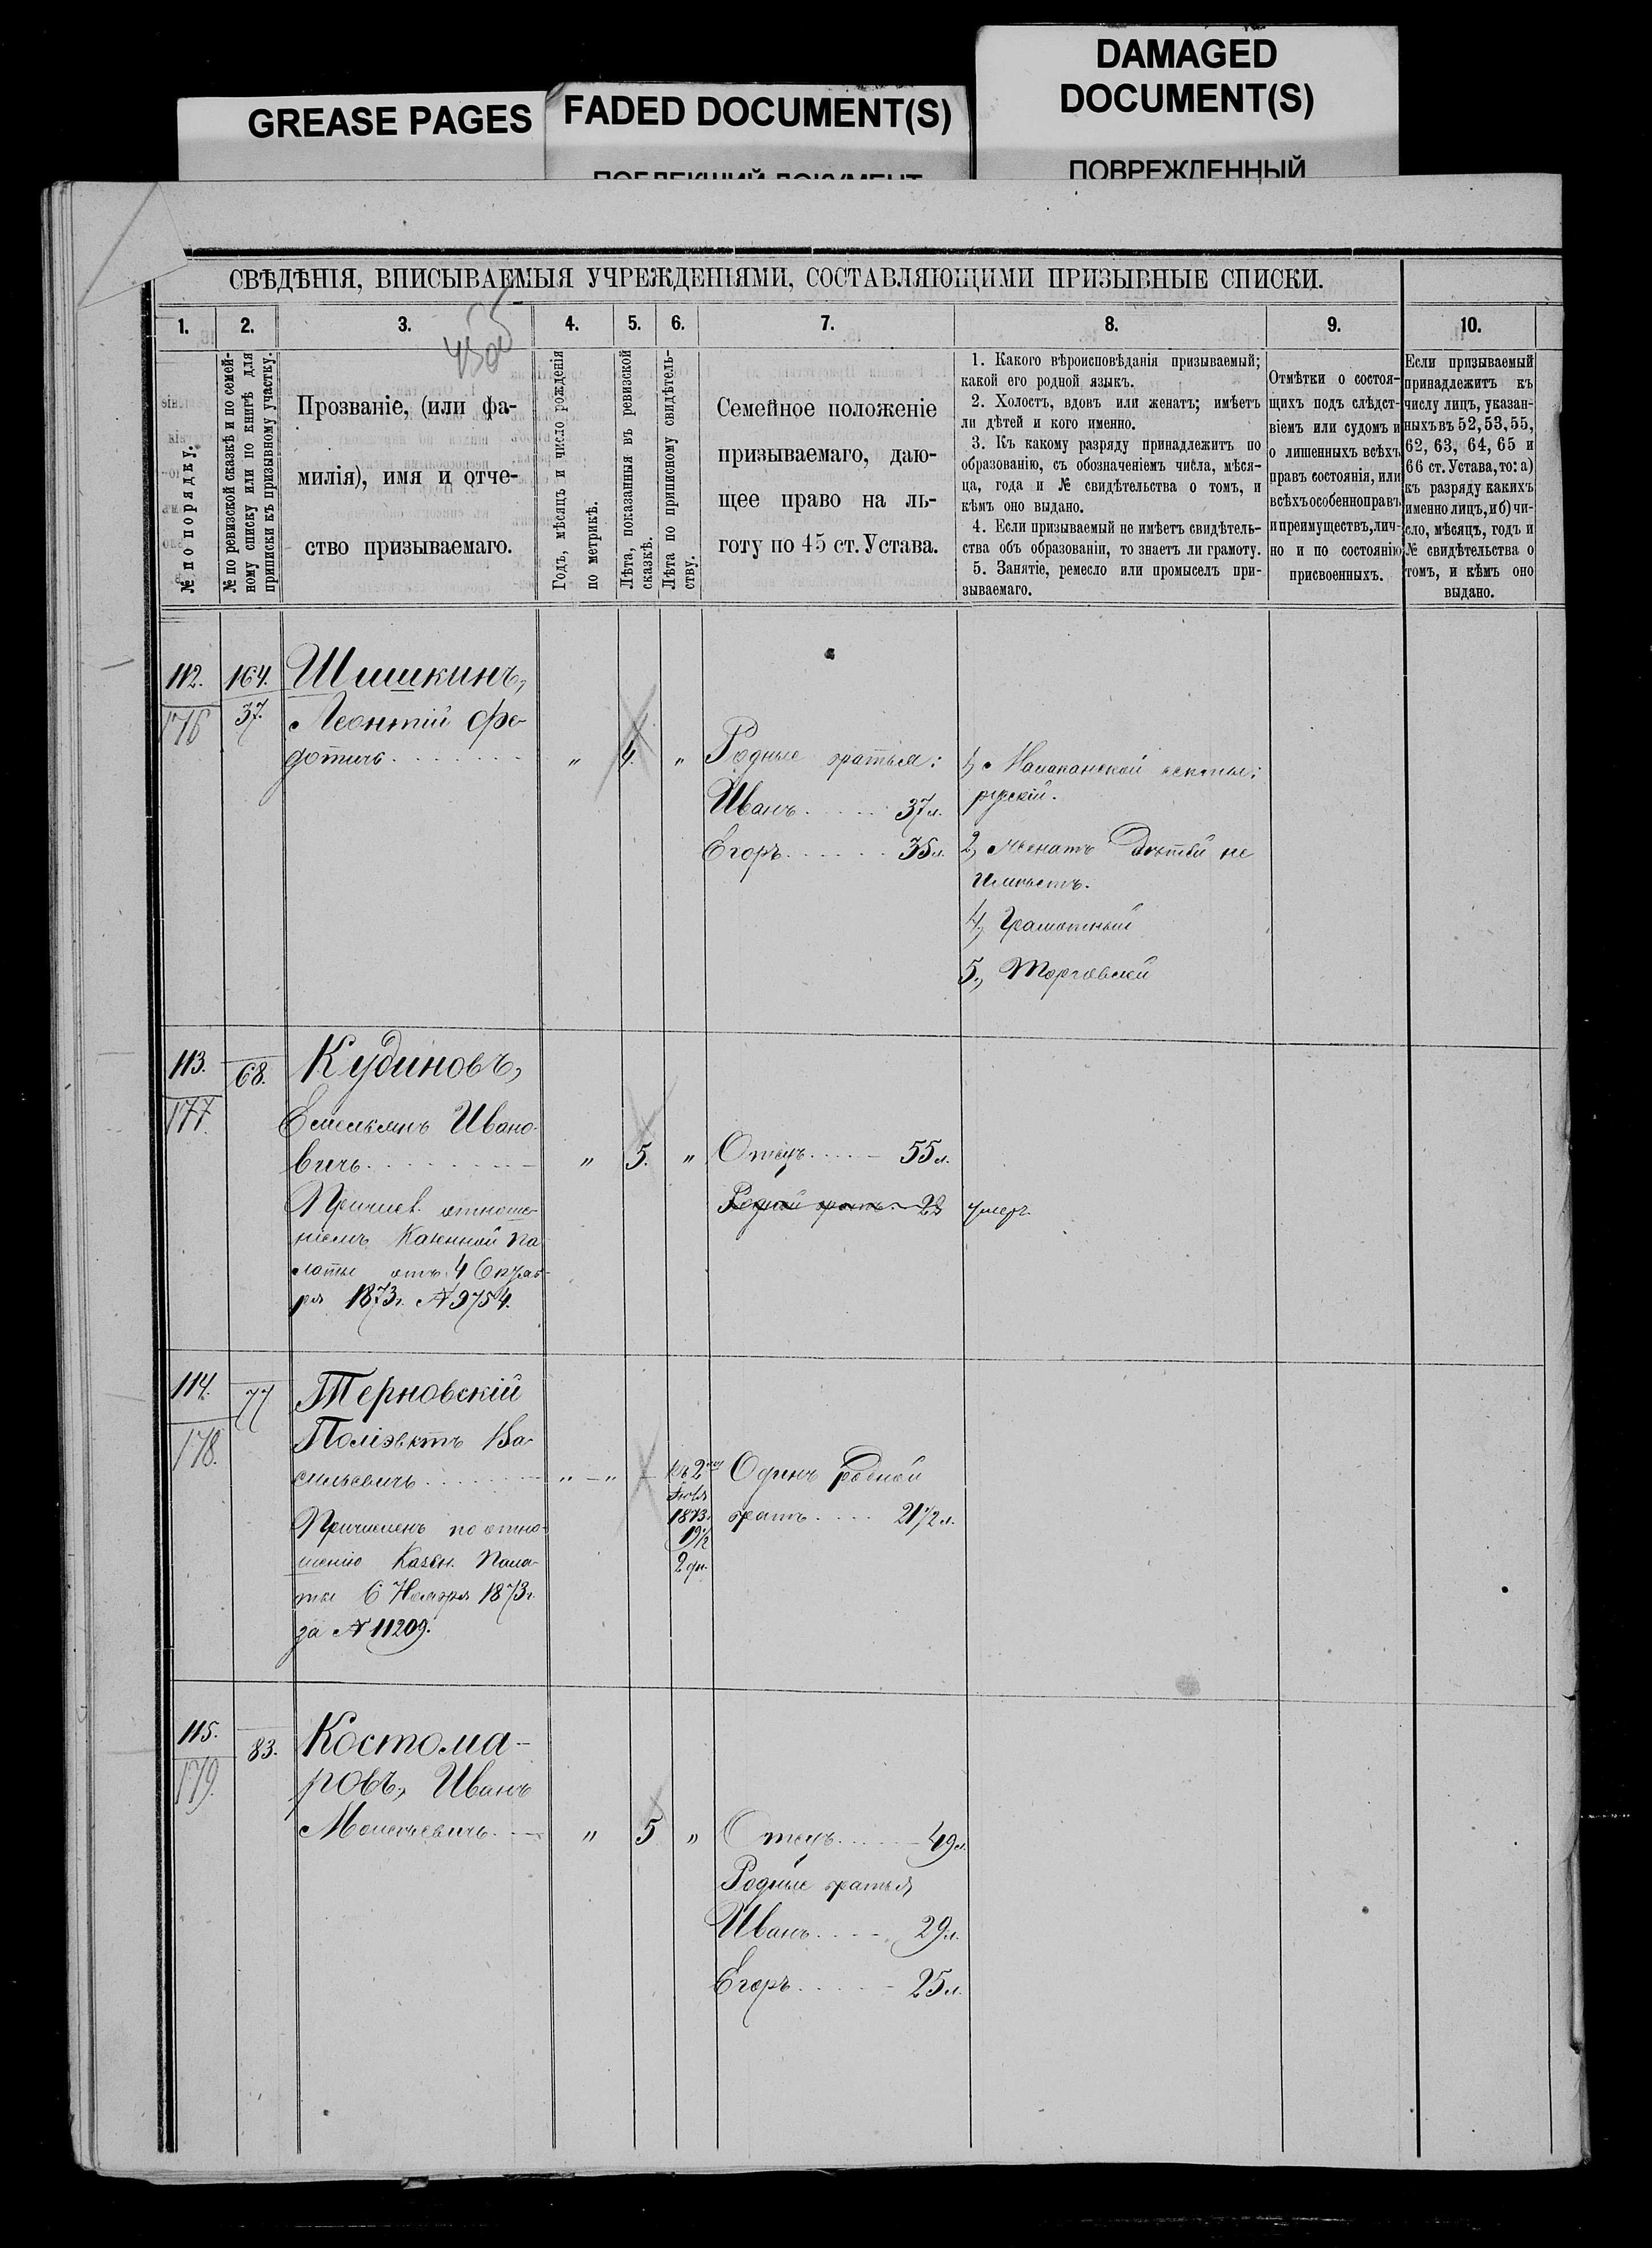 GREASE PAGES
FADED DOCUMENT(S)
DAMAGED
DOCUMENT(S)
ПОВРЕЖДЕННЫЙ
СВѢДѢНІЯ, ВПИСЫВАЕМЫЯ УЧРЕЖДЕНІЯМИ, СОСТАВЛЯЮЩИМИ ПРИЗЫВНЫЕ СПИСКИ.
1. 2. 3. 4. 5. 6. 7. 8. 9. 10.
№ по порядку.
№ по ревизской сказкѣ и по семей-
ному списку или по книгѣ для
приписки къ призывному участку.
Прозваніе, (или фа-
милія), имя и отче-
ство призываемаго.
Годъ, мѣсяцъ и число рожденія
по метрикѣ.
Лѣта, показанныя въ ревизской
сказкѣ.
Лѣта по приписному свидѣтель-
ству.
Семейное положеніе
призываемаго, даю-
щее право на ль-
готу по 45 ст. Устава.
1. Какого вѣроисповѣданія призываемый;
какой его родной языкъ.
2. Холостъ, вдовъ или женатъ; имѣетъ
ли дѣтей и кого именно.
3. Къ какому разряду принадлежитъ по
образованію, съ обозначеніемъ числа, мѣся-
ца, года и № свидѣтельства о томъ, и
кѣмъ оно выдано.
4. Если призываемый не имѣетъ свидѣтель-
ства объ образованіи, то знаетъ ли грамоту.
5. Занятіе, ремесло или промыселъ при-
зываемаго.
Отмѣтки о состоя-
щихъ подъ слѣдст-
віемъ или судомъ и
о лишенныхъ всѣхъ
правъ состоянія, или
всѣхъ особенно правъ
и преимуществъ, лич-
но и по состоянію
присвоенныхъ.
Если призываемый
принадлежитъ къ
числу лицъ, указан-
ныхъ въ 52, 53, 55,
62, 63, 64, 65 и
66 ст. Устава, то: а)
къ разряду какихъ
именно лицъ, и б) чи-
сло, мѣсяцъ, годъ и
№ свидѣтельства о
томъ, и кѣмъ оно
выдано.
112. 164. Шишкинъ,
176 37. Леонтій Фе-
дотичъ " 4. " Родные братья: 1, Молоканской секты;
русскій.
Иванъ 37 л.
Егоръ 35 л. 2, Женатъ Дѣтей не
имѣетъ.
4, Грамотный
5, Торговлей
113. 68. Кудиновъ,
177 Емельянъ Ивано-
вичъ " 5. " Отецъ 55 л.
Родной братъ 22 умеръ.
Причисл. отноше-
ніемъ Казенной Па-
латы отъ 4 Октяб-
ря 1873 г. № 9754.
114. 77 Терновскій
178. Поліэвктъ Ва-
сильевичъ " — " Къ 2 Одинъ родной
1873 братъ 21 1/2 л.
19 1/2
Причисленъ по отно-
шенію Казен. Пала-
ты 6 Ноября 1873 г.
за № 11209.
115. 83. Костома-
179. ровъ, Иванъ
Моисѣевичъ " 5 " Отецъ 49 л.
Родные братья
Иванъ 29 л.
Егоръ 25 л.